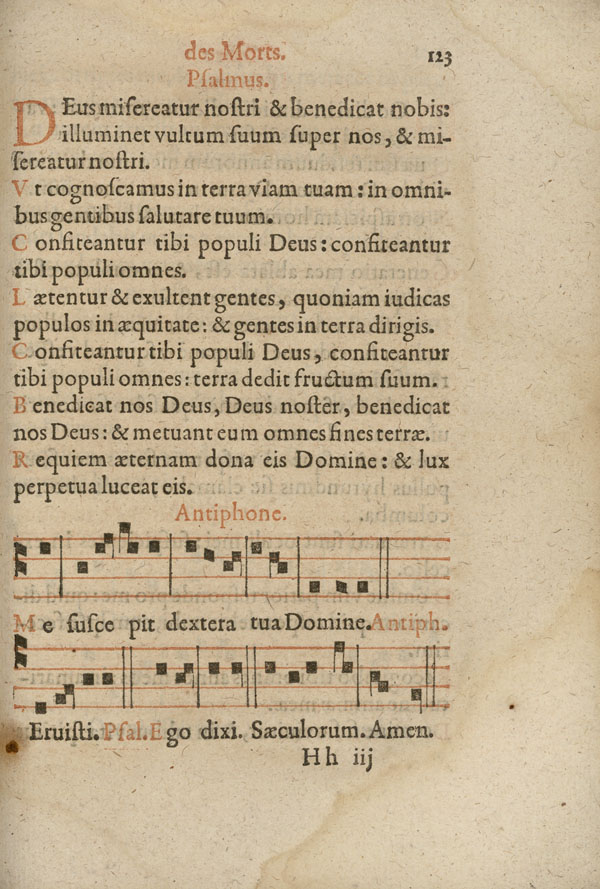 des Morts. 123
Psalmus.
DEus misereatur nostri & benedicat nobis:
illuminet vultum suum super nos, & mi-
sereatur nostri.
Vt cognoscamus in terra viam tuam: in omni-
bus gentibus salutare tuum.
Confiteantur tibi populi Deus: confiteantur
tibi populi omnes.
Lætentur & exultent gentes, quoniam iudicas
populos in æquitate: & gentes in terra dirigis.
Confiteantur tibi populi Deus, confiteantur
tibi populi omnes: terra dedit fructum suum.
Benedicat nos Deus, Deus noster, benedicat
nos Deus: & metuant eum omnes fines terræ.
Requiem æternam dona eis Domine: & lux
perpetua luceat eis.
Antiphone.
Me susce pit dextera tua Domine. Antiph.
Eruisti. Psal. Ego dixi. Sæculorum. Amen.
Hh iij